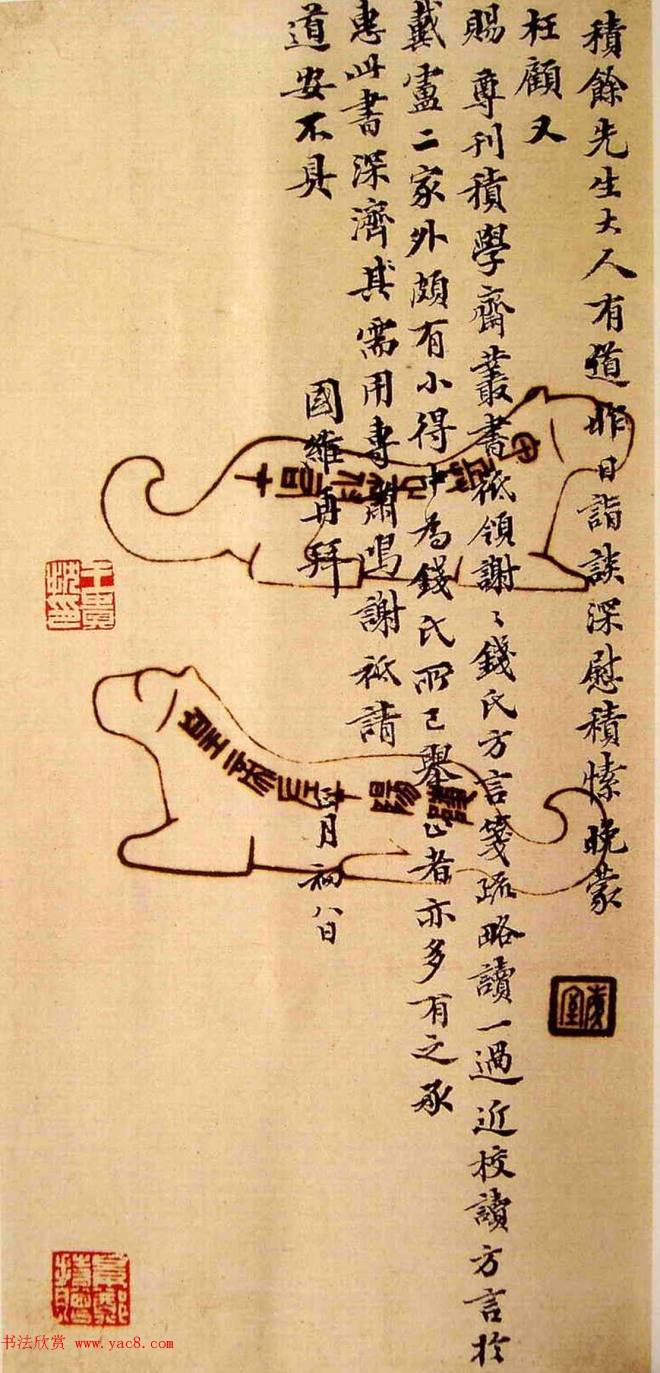 積餘先生大人有道昨日詣談深慰積愫晚蒙
枉顧又
賜尊刊積學齋叢書祇領謝〻錢氏方言箋疏略讀一過近校讀方言於
戴盧二家外頗有小得中為錢氏所已舉正者亦多有之承
惠此書深濟其需用專肅鳴謝祇請
道安不具
國維再拜
正月初八日
书法欣赏 www.yac8.com